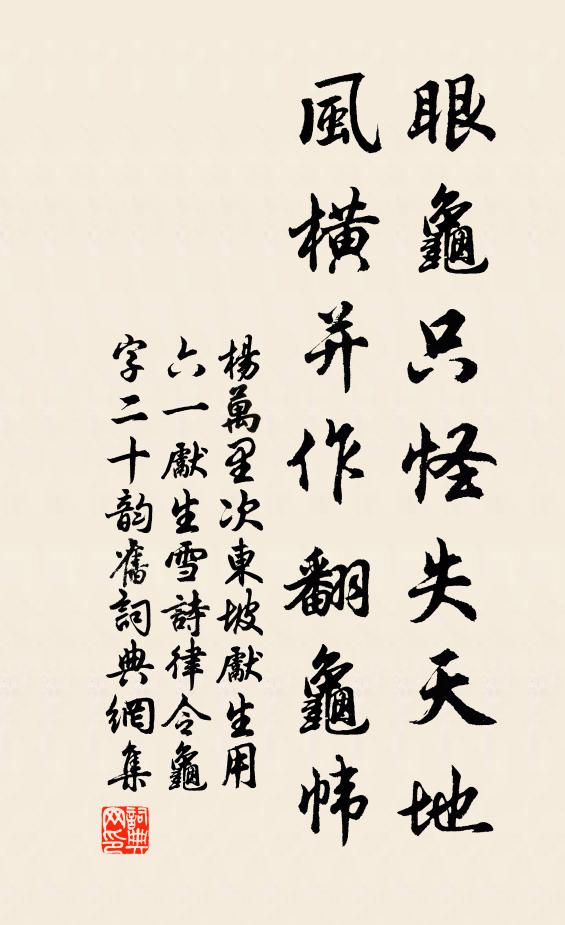 眼龜只怪失天地
風橫并作翻龜帏
楊萬里次東坡獻生用
六一獻生雪詩律令龜
字二十韵舊詞典網集
詞典
网印